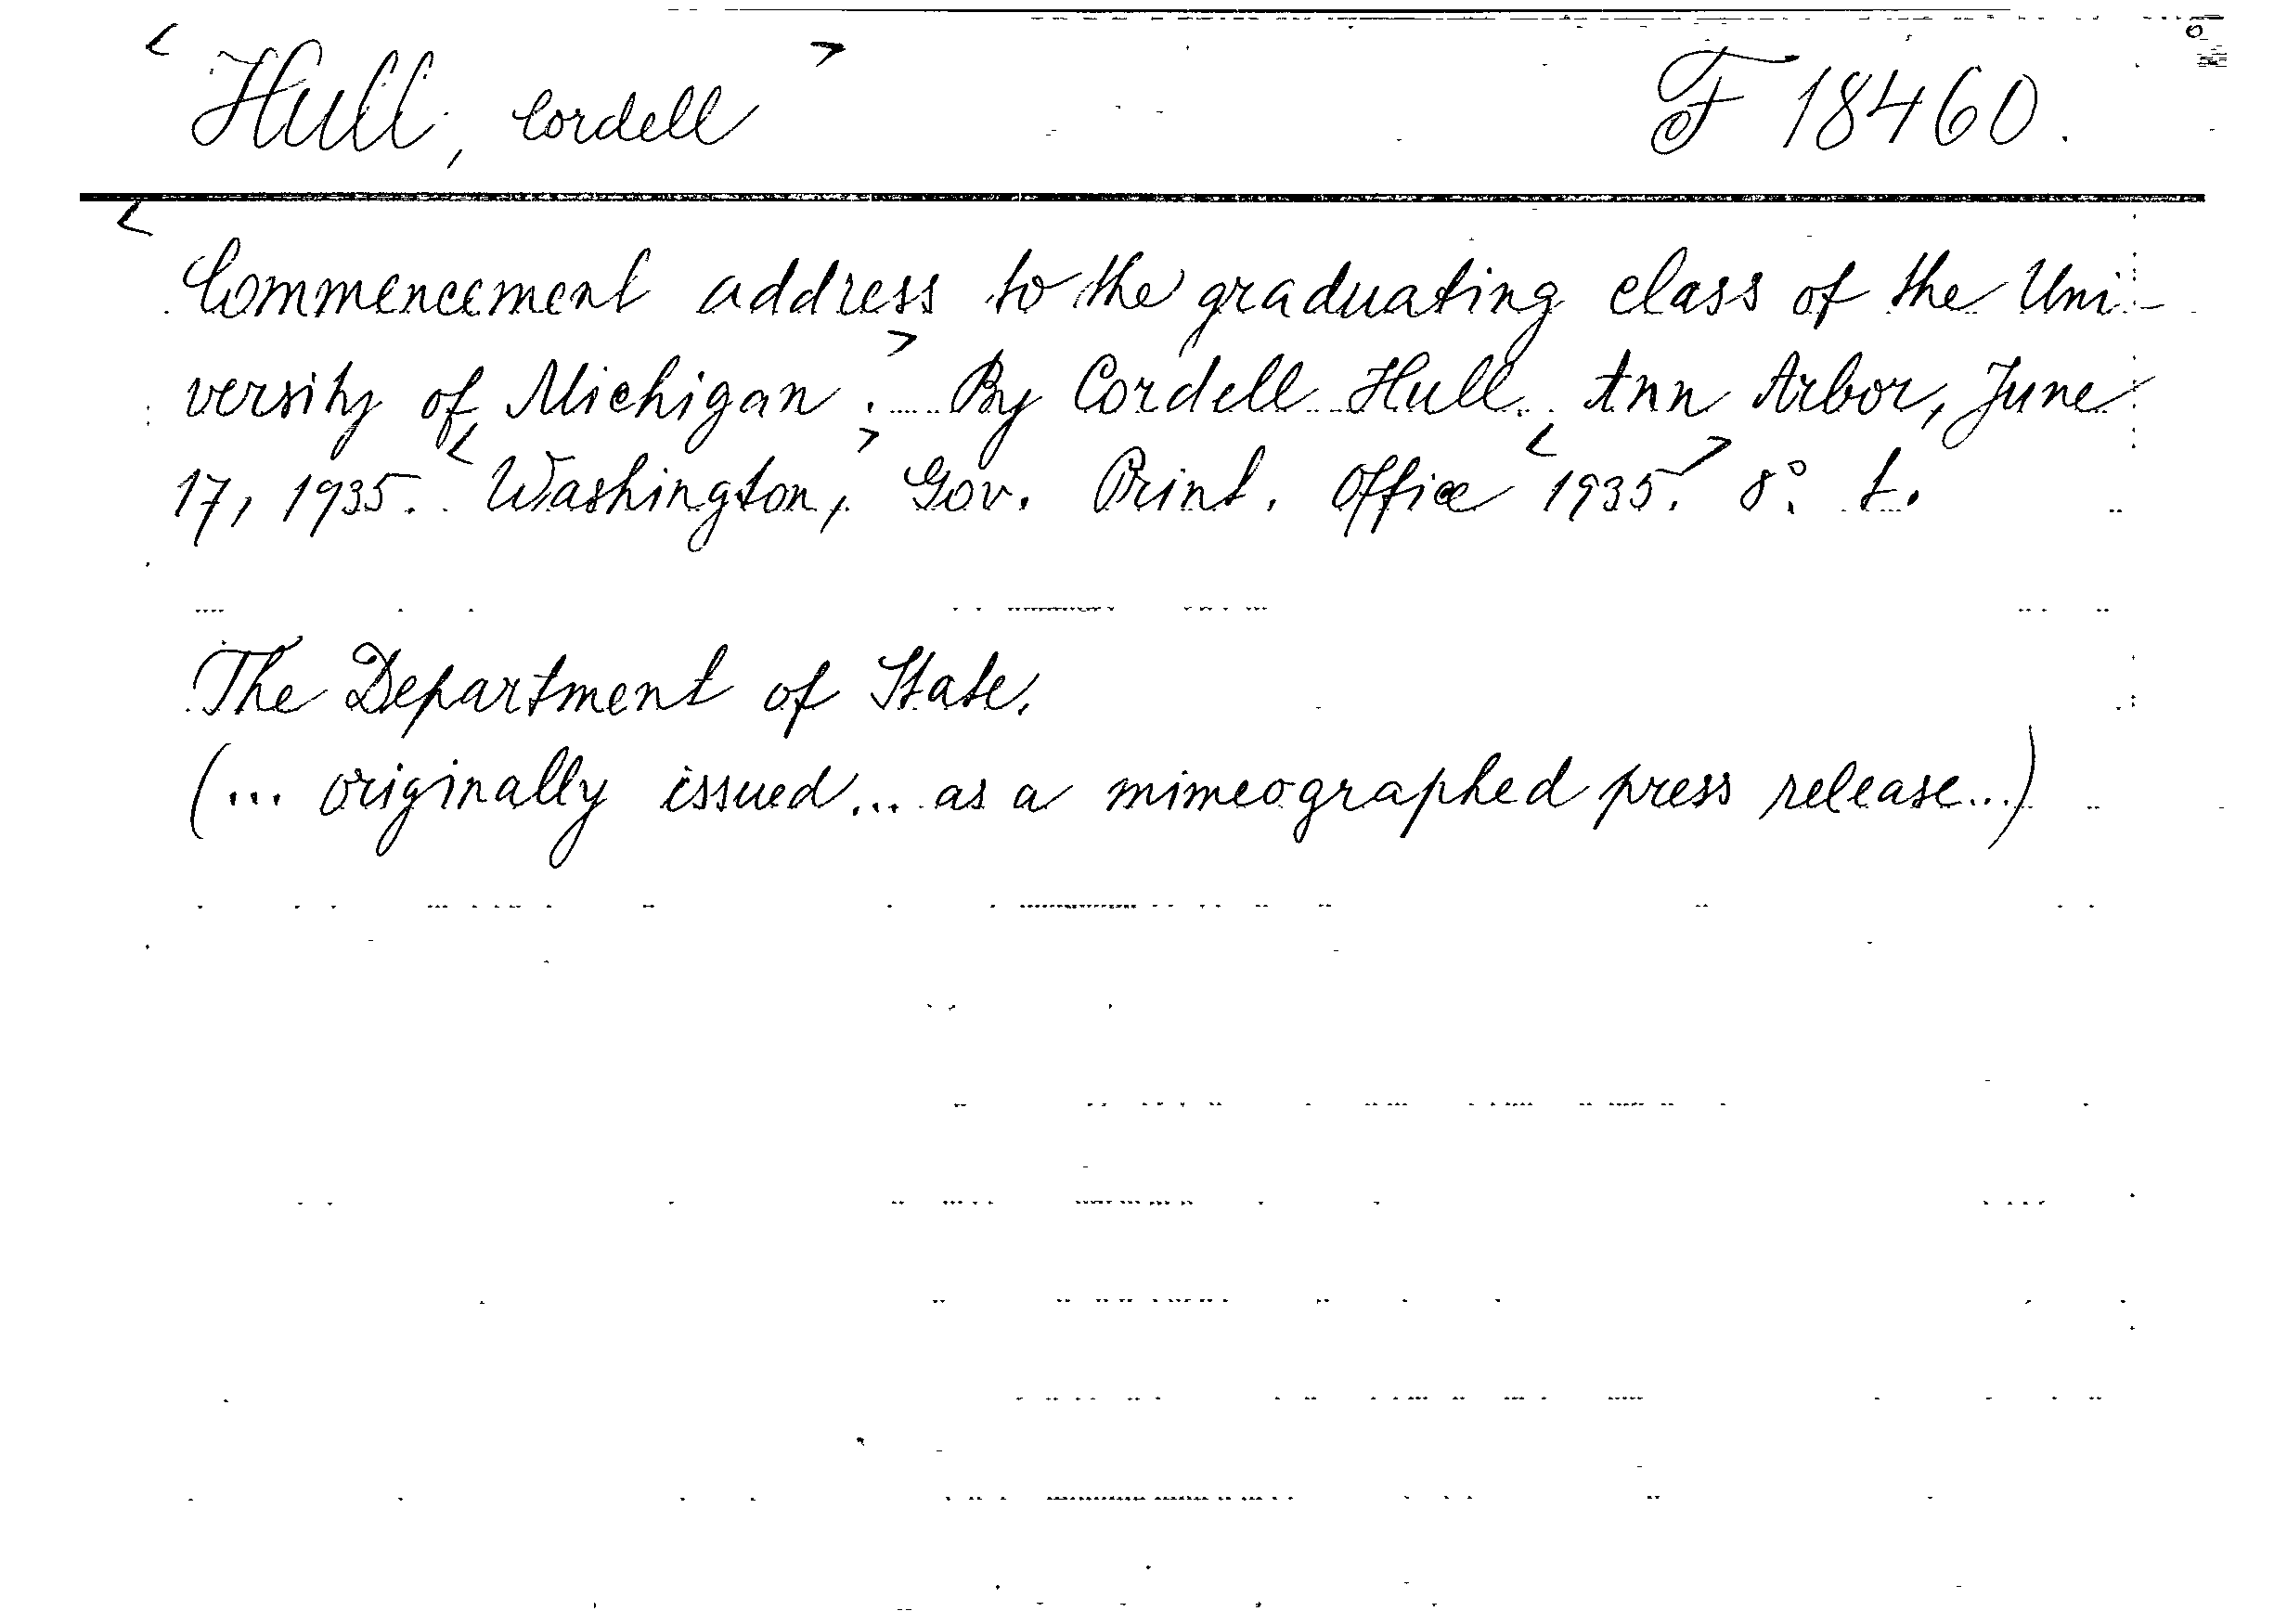 Hull, Cordell F 18460.
Commencement address to the graduating class of the Uni-
versity of Michigan. By Cordell Hull. Ann Arbor, June
17, 1935. Washington, Gov. Print. Office 1935. 8°. t.
The Department of State.
(... originally issued... as a mimeographed press release...)